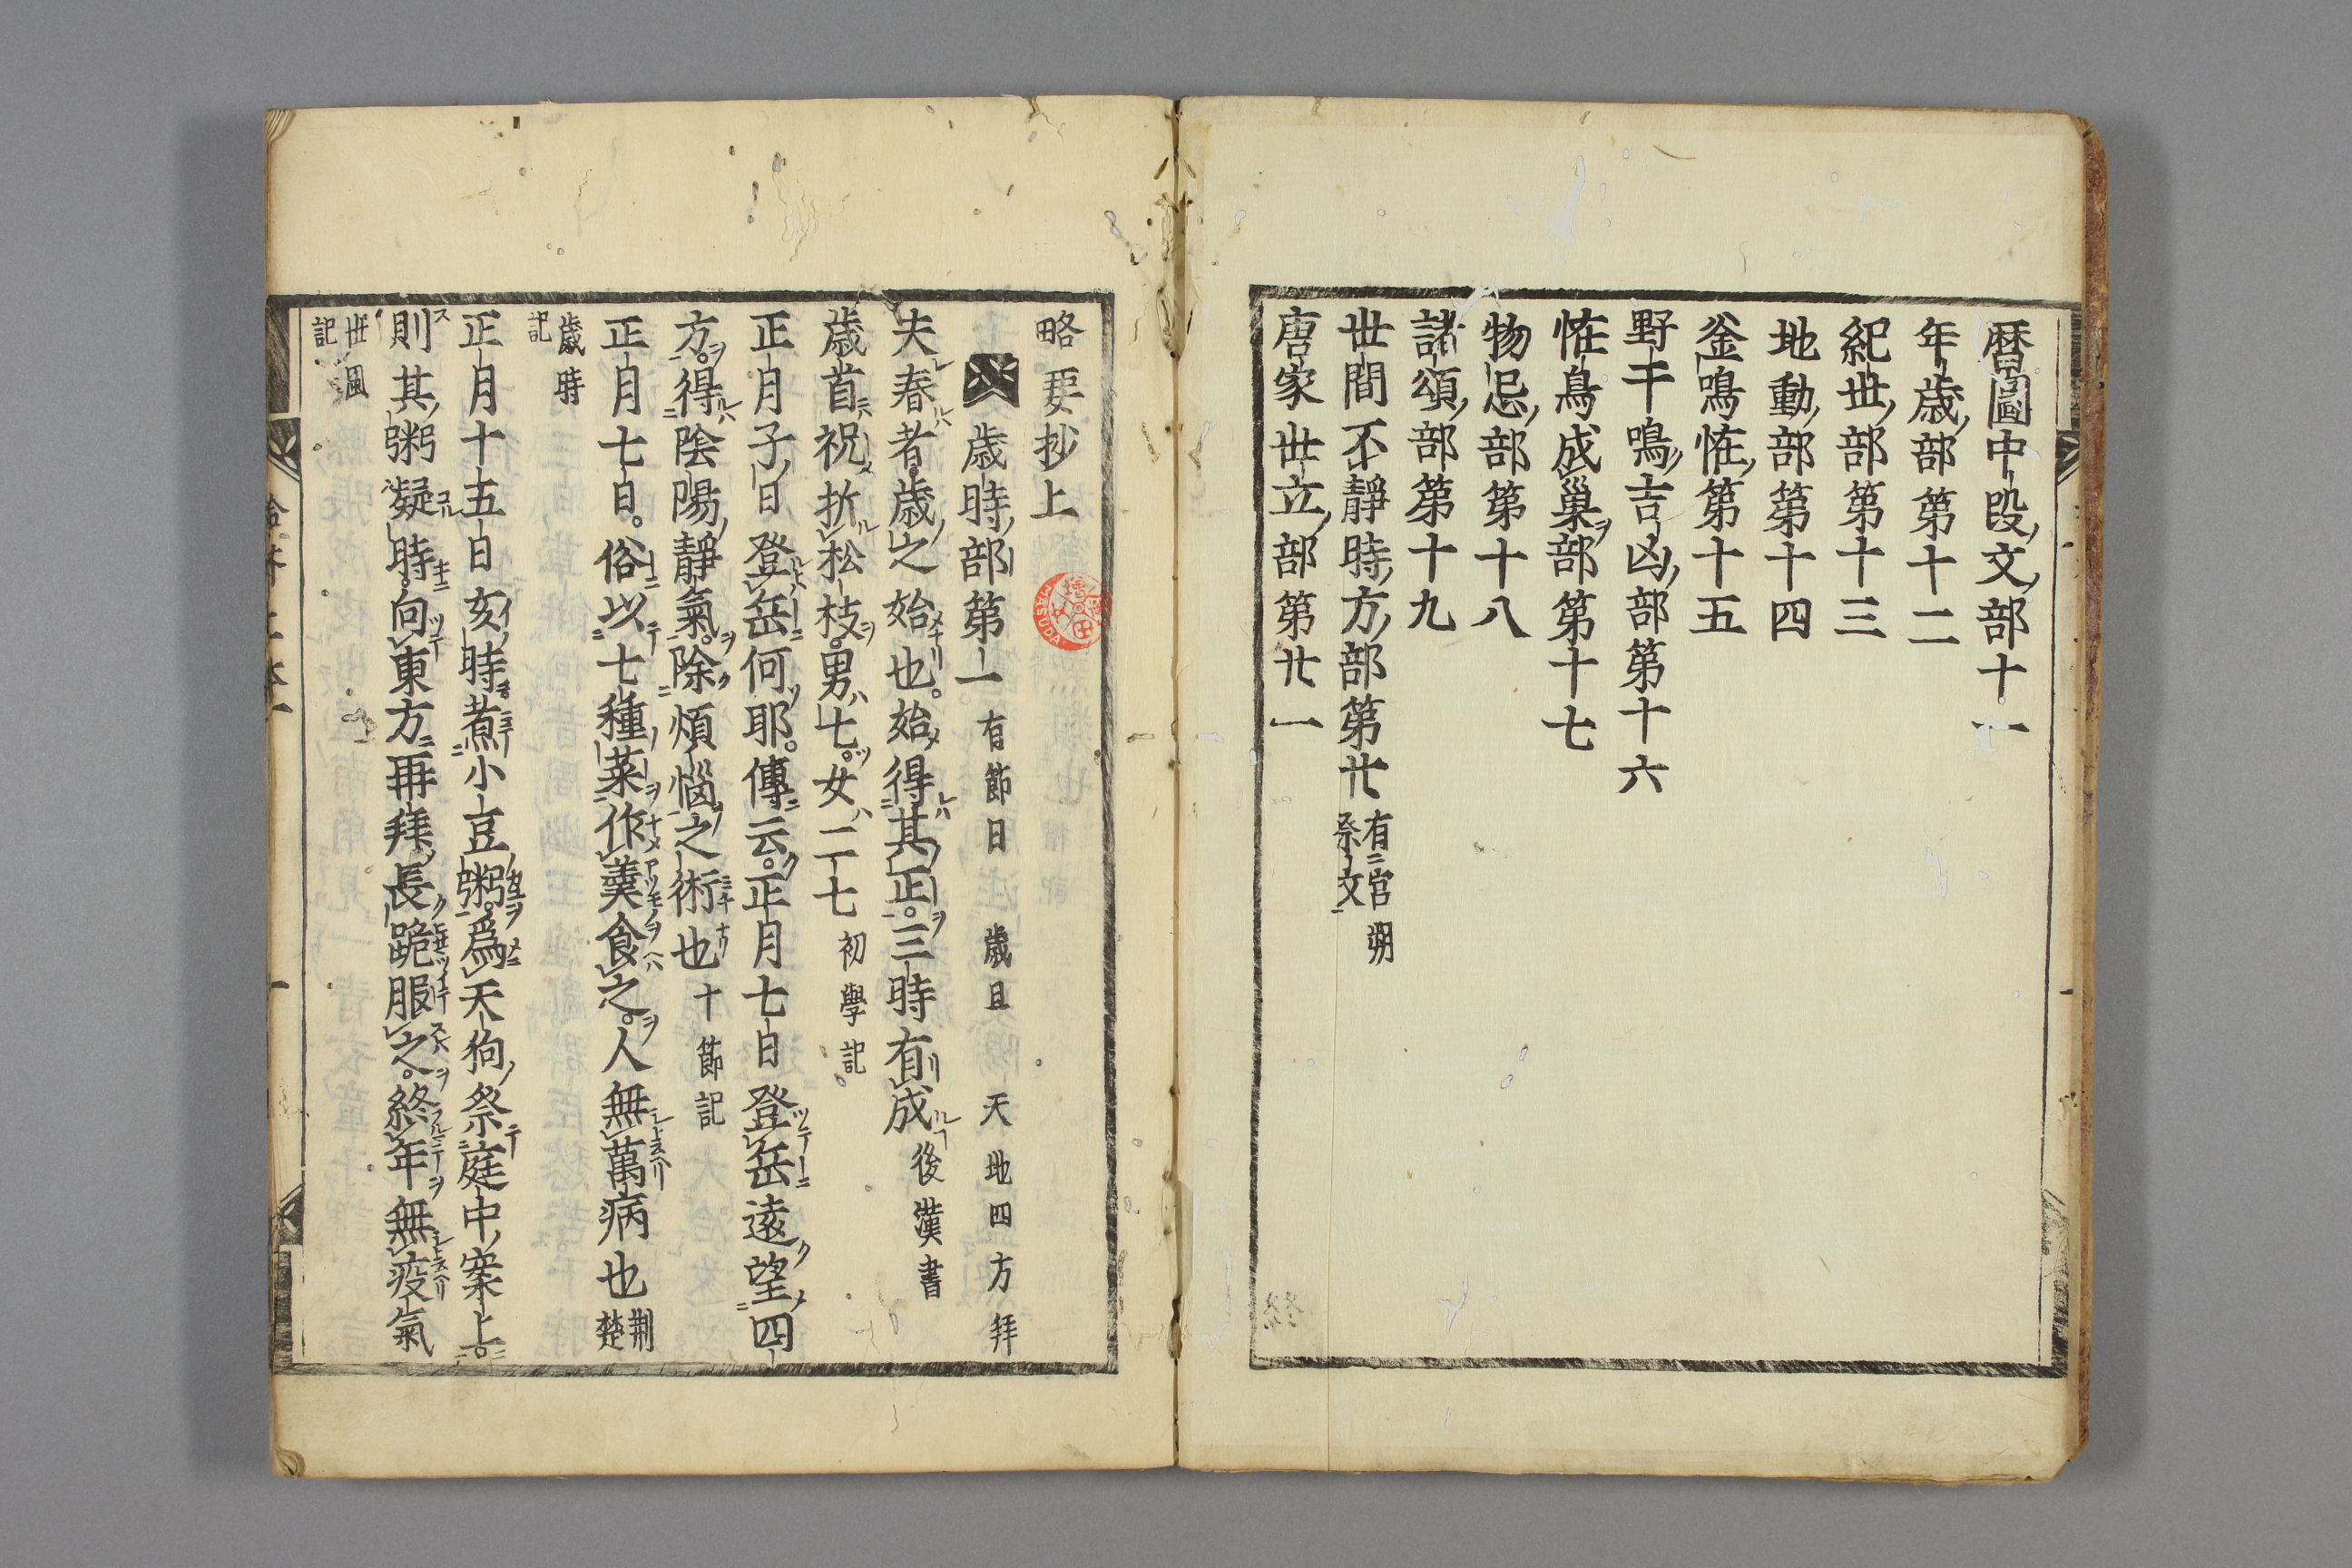 暦圖中段文部十一
年歳部第十二
紀丗部第十三
地動部第十四
釜鳴恠第十五
野干鳴吉凶部第十六
恠鳥成巣部第十七
物忌部第十八
諸頌部第十九
丗間不靜時方部第廿 有官朔祭文
唐家丗立部第廿一
略要抄上
歳時部第一 有節日 歳旦 天地四方拜
夫春者歳之始也。始得其正。三時有成 後漢書
歳首祝折松枝。男七。女二七 初學記
正月子日登岳何耶。傳云。正月七日登岳遠望四
方。得陰陽靜氣。除煩惱之術也 十節記
正月七日。俗以七種菜作羹食之。人無萬病也 荆楚
歳時記
正月十五日亥時煮小豆粥。爲天狗祭庭中案上。
則其粥凝時。向東方再拜長跪服之。終年無疫氣
丗風記